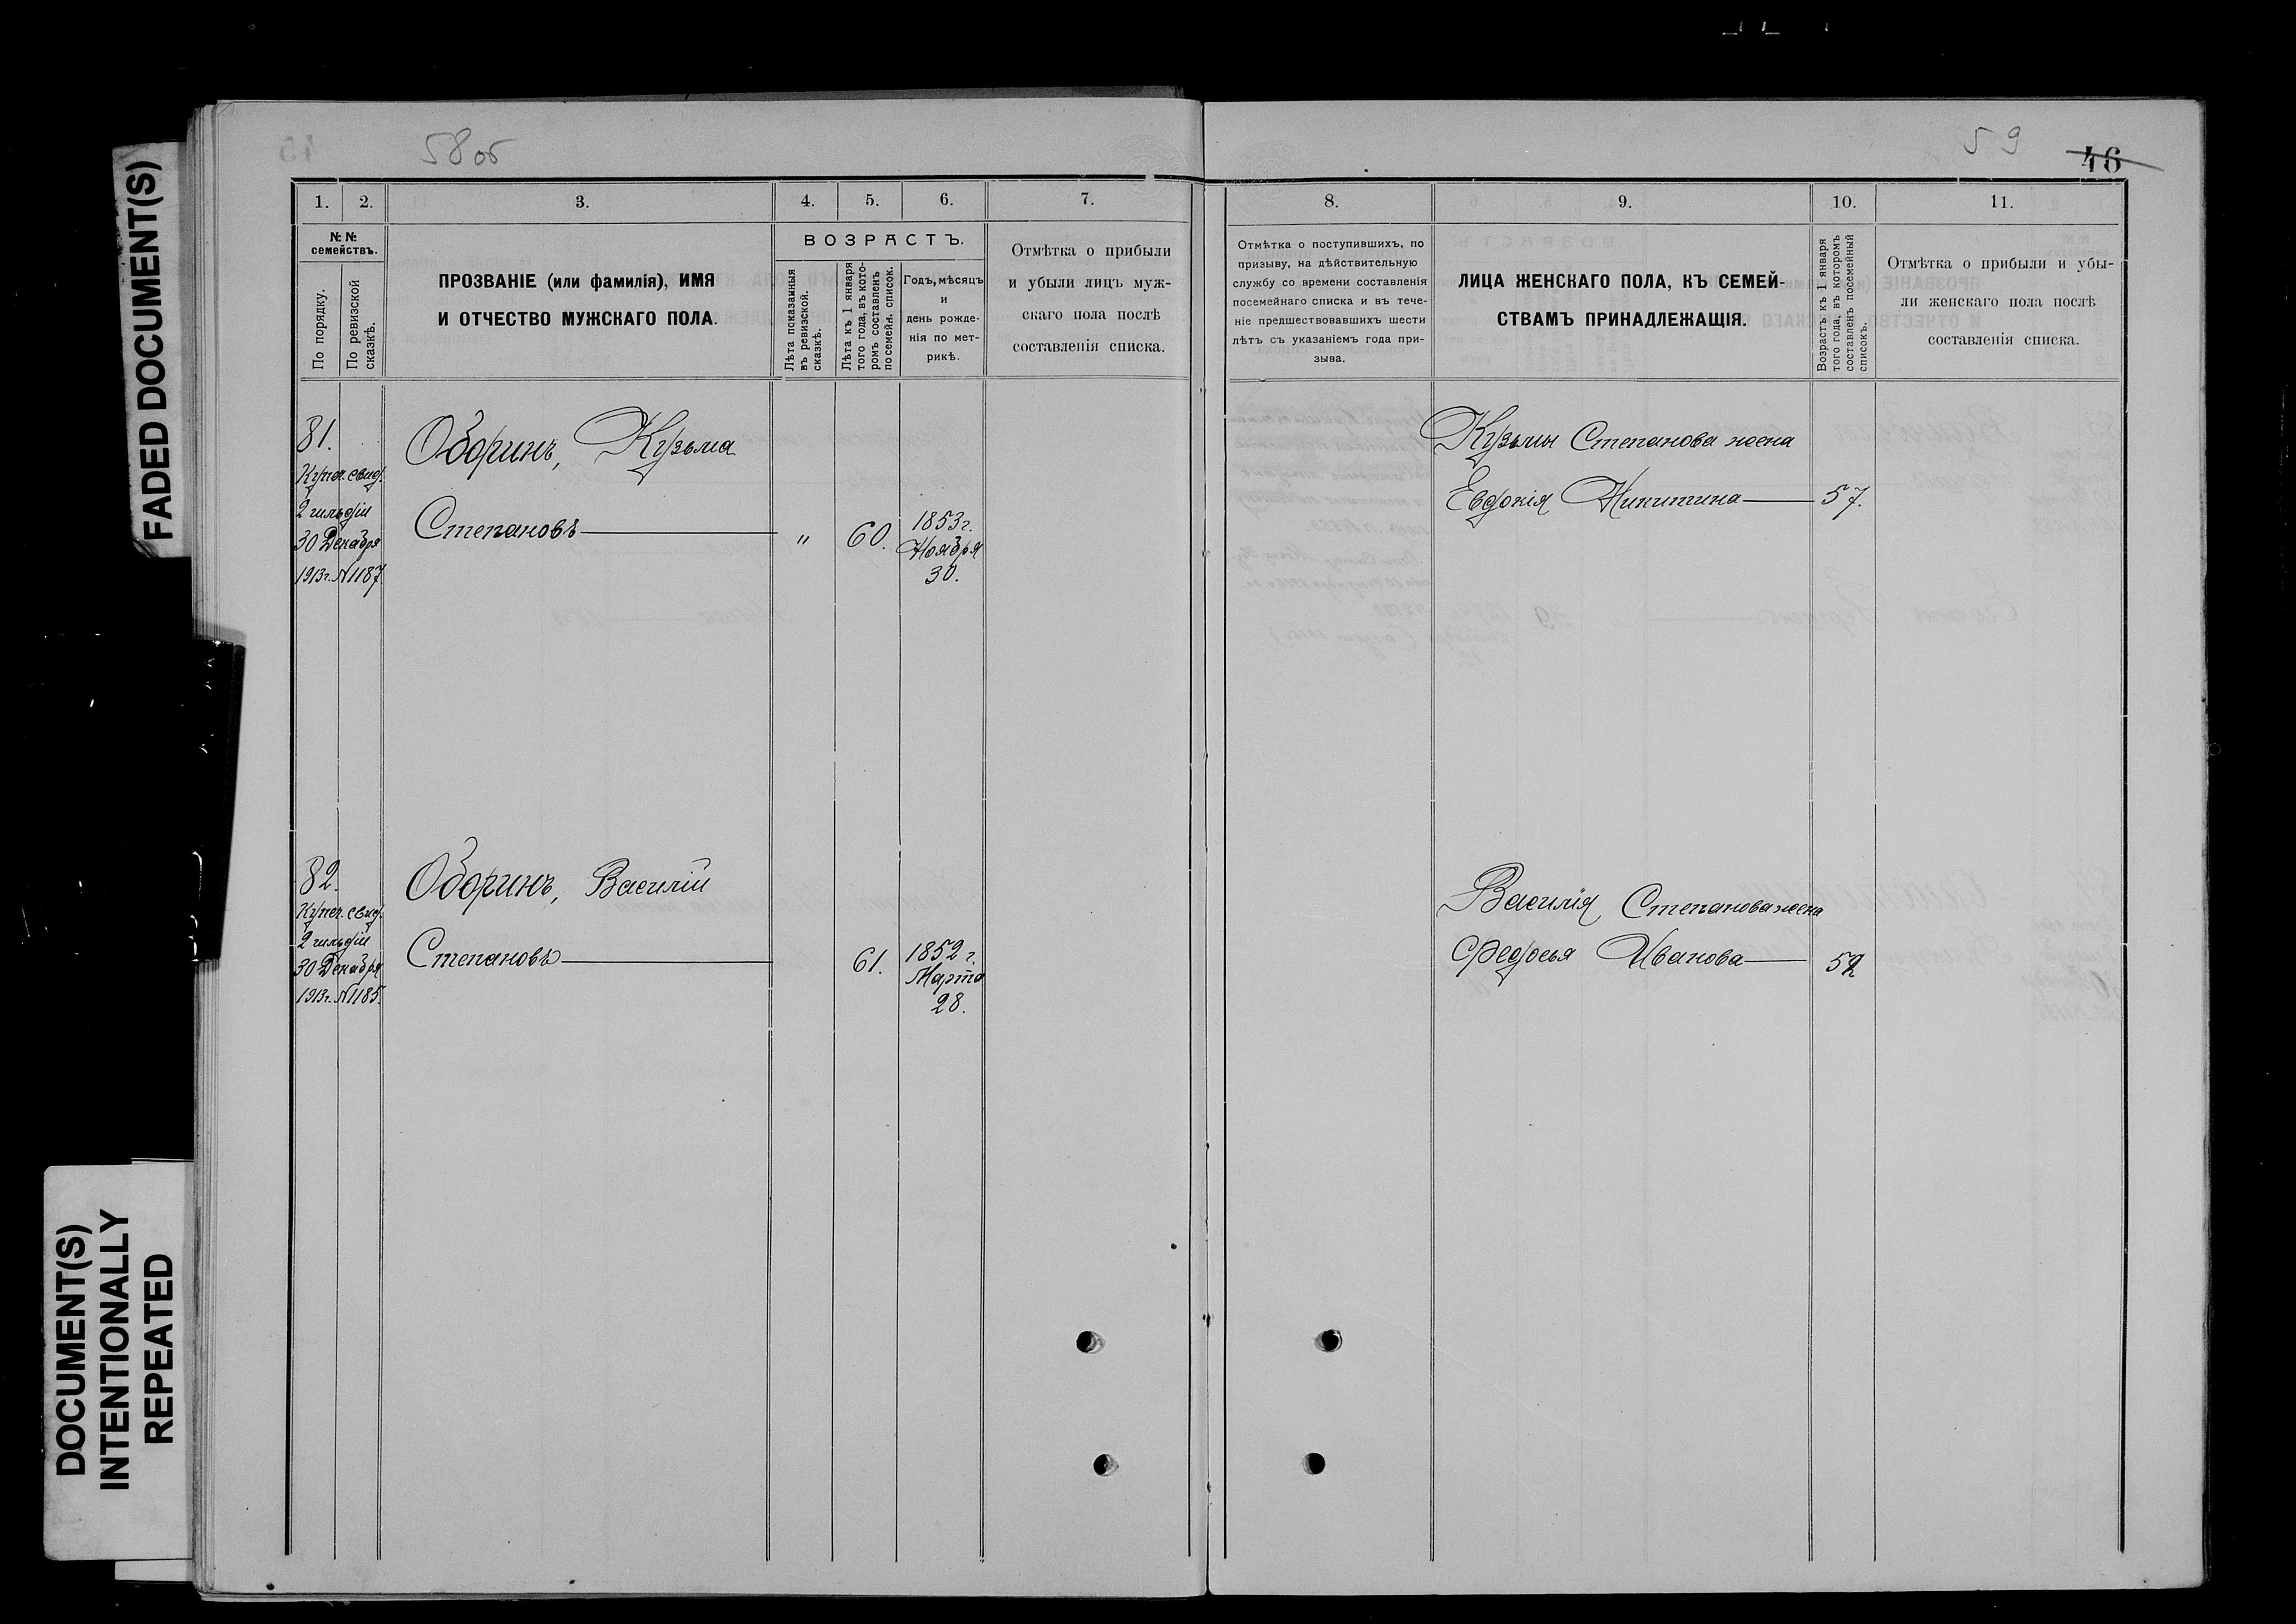 58об
59
46
FADED DOCUMENT(S)
DOCUMENT(S)
INTENTIONALLY
REPEATED
1.
2.
3.
4.
5.
6.
7.
№ №
семействъ.
По порядку.
По ревизской
сказкѣ.
ПРОЗВАНІЕ (или фамилія), ИМЯ
И ОТЧЕСТВО МУЖСКАГО ПОЛА.
ВОЗРАСТЪ.
Лѣта показанныя
въ ревизской.
сказкѣ.
Лѣта къ 1 января
того года, въ кото-
ромъ составленъ
посемейн. список.
Годъ, мѣсяцъ
и
день рожде-
нія по мет-
рикѣ.
Отмѣтка о прибыли
и убыли лицъ муж-
скаго пола послѣ
составленія списка.
81.
Купеч. свид.
2 гильдіи
30 Декабря
1913г. N1187
Оборинъ, Кузьма
Степановъ
"
60.
1853г.
Ноября
30.
82.
Купеч. свид.
2 гильдіи
30 Декабря
1913г. N1185.
Оборинъ, Василій
Степановъ
61.
1852 г.
Марта
28.
8.
9.
10.
11.
Отмѣтка о поступившихъ, по
призыву, на дѣйствительную
службу со времени составленія
посемейнаго списка и въ тече-
ніе предшествовавшихъ шести
лѣтъ съ указаніемъ года при-
зыва.
ЛИЦА ЖЕНСКАГО ПОЛА, КЪ СЕМЕЙ-
СТВАМЪ ПРИНАДЛЕЖАЩІЯ.
Возрастъ къ 1 января
того года, въ которомъ
составленъ посемейный
списокъ.
Отмѣтка о прибыли и убы-
ли женскаго пола послѣ
составленія списка.
Кузьмы Степанова жена
Евдокія Никитина 57.
Василія Степанова жена
Федосья Иванова 52